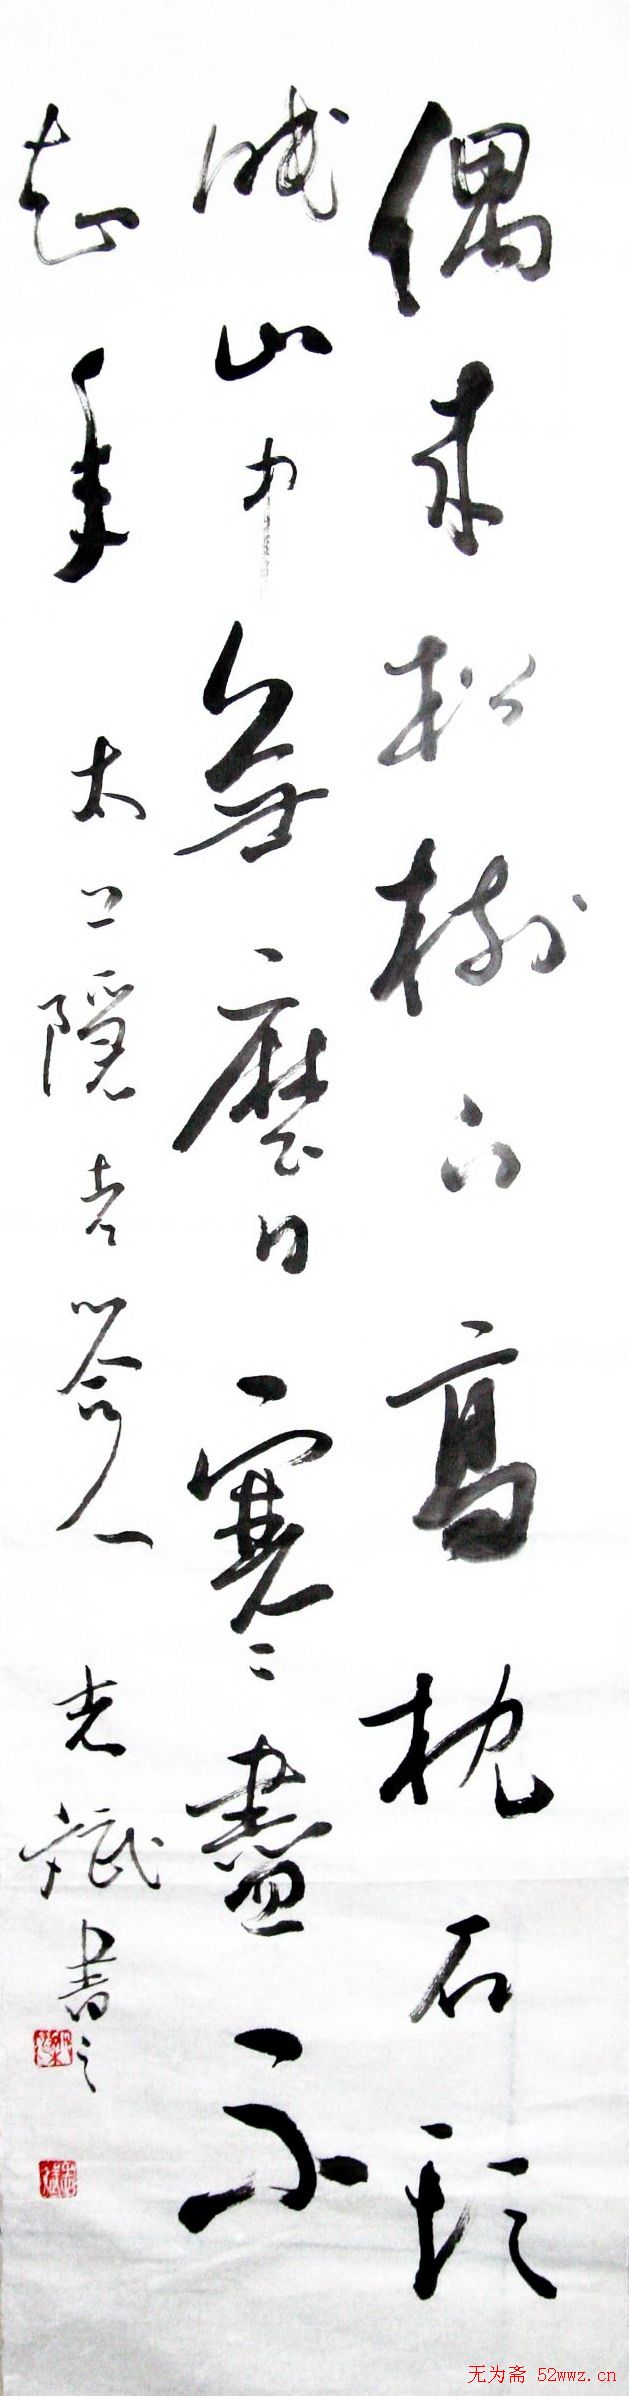 偶來松樹下高枕石頭
眠山中無曆日寒盡不
知年 太上隱者答人 光斌書之
无为斋 52wwz.cn